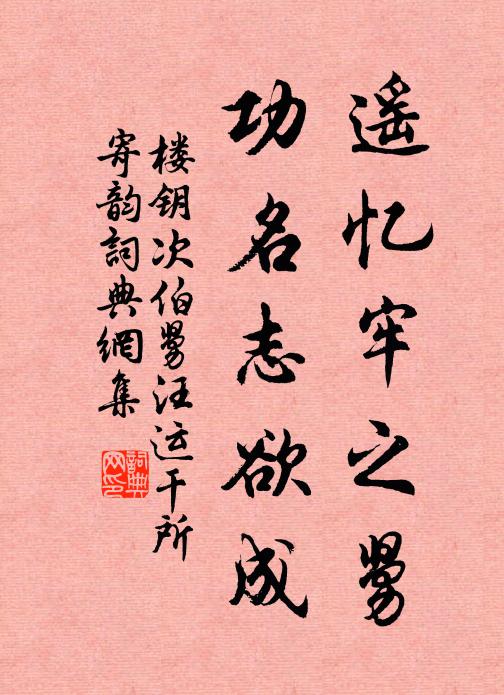 遥忆牢之舅
功名志欲成
楼钥次伯舅汪运干所
寄韵詞典網集
詞典
网印